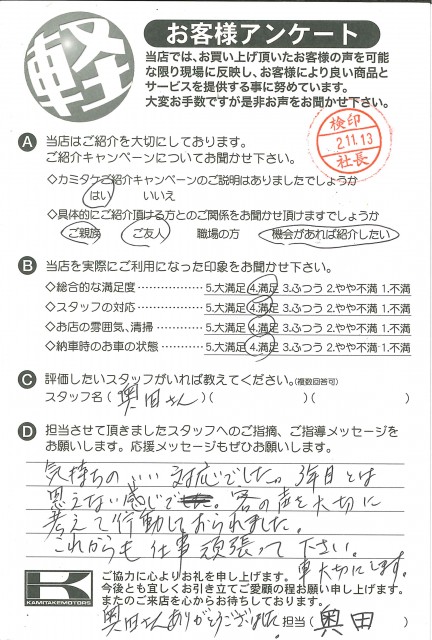 軽
お客様アンケート
当店では、お買い上げ頂いたお客様の声を可能
な限り現場に反映し、お客様により良い商品と
サービスを提供する事に努めています。
大変お手数ですが是非お声をお聞かせ下さい。
検印
2.11.13
社長
A 当店はご紹介を大切にしております。
ご紹介キャンペーンについてお聞かせ下さい。
◇カミタケご紹介キャンペーンのご説明はありましたでしょうか
はい いいえ
◇具体的にご紹介頂ける方とのご関係をお聞かせ頂けますでしょうか
ご親族 ご友人 職場の方 機会があれば紹介したい
B 当店を実際にご利用になった印象をお聞かせ下さい。
◇総合的な満足度 5.大満足 4.満足 3.ふつう 2.やや不満 1.不満
◇スタッフの対応 5.大満足 4.満足 3.ふつう 2.やや不満 1.不満
◇お店の雰囲気、清掃 5.大満足 4.満足 3.ふつう 2.やや不満 1.不満
◇納車時のお車の状態 5.大満足 4.満足 3.ふつう 2.やや不満 1.不満
C 評価したいスタッフがいれば教えてください。(複数回答可)
スタッフ名(奥田さん)( )( )
D 担当させて頂きましたスタッフへのご指摘、ご指導メッセージを
お願いします。応援メッセージもぜひお願いします。
気持ちのいい対応でした。3年目とは
思えない感じで。客の声を大切に
考えて行動しておられました。
これからも仕事頑張って下さい。
車大切にします。
K
KAMITAKEMOTORS
ご協力に心よりお礼を申し上げます。
今後とも宜しくお引き立てご愛顧の程お願い申し上げます。
またのご来店を心からお待ちしております。
奥田さんありがとうございました 担当(奥田)